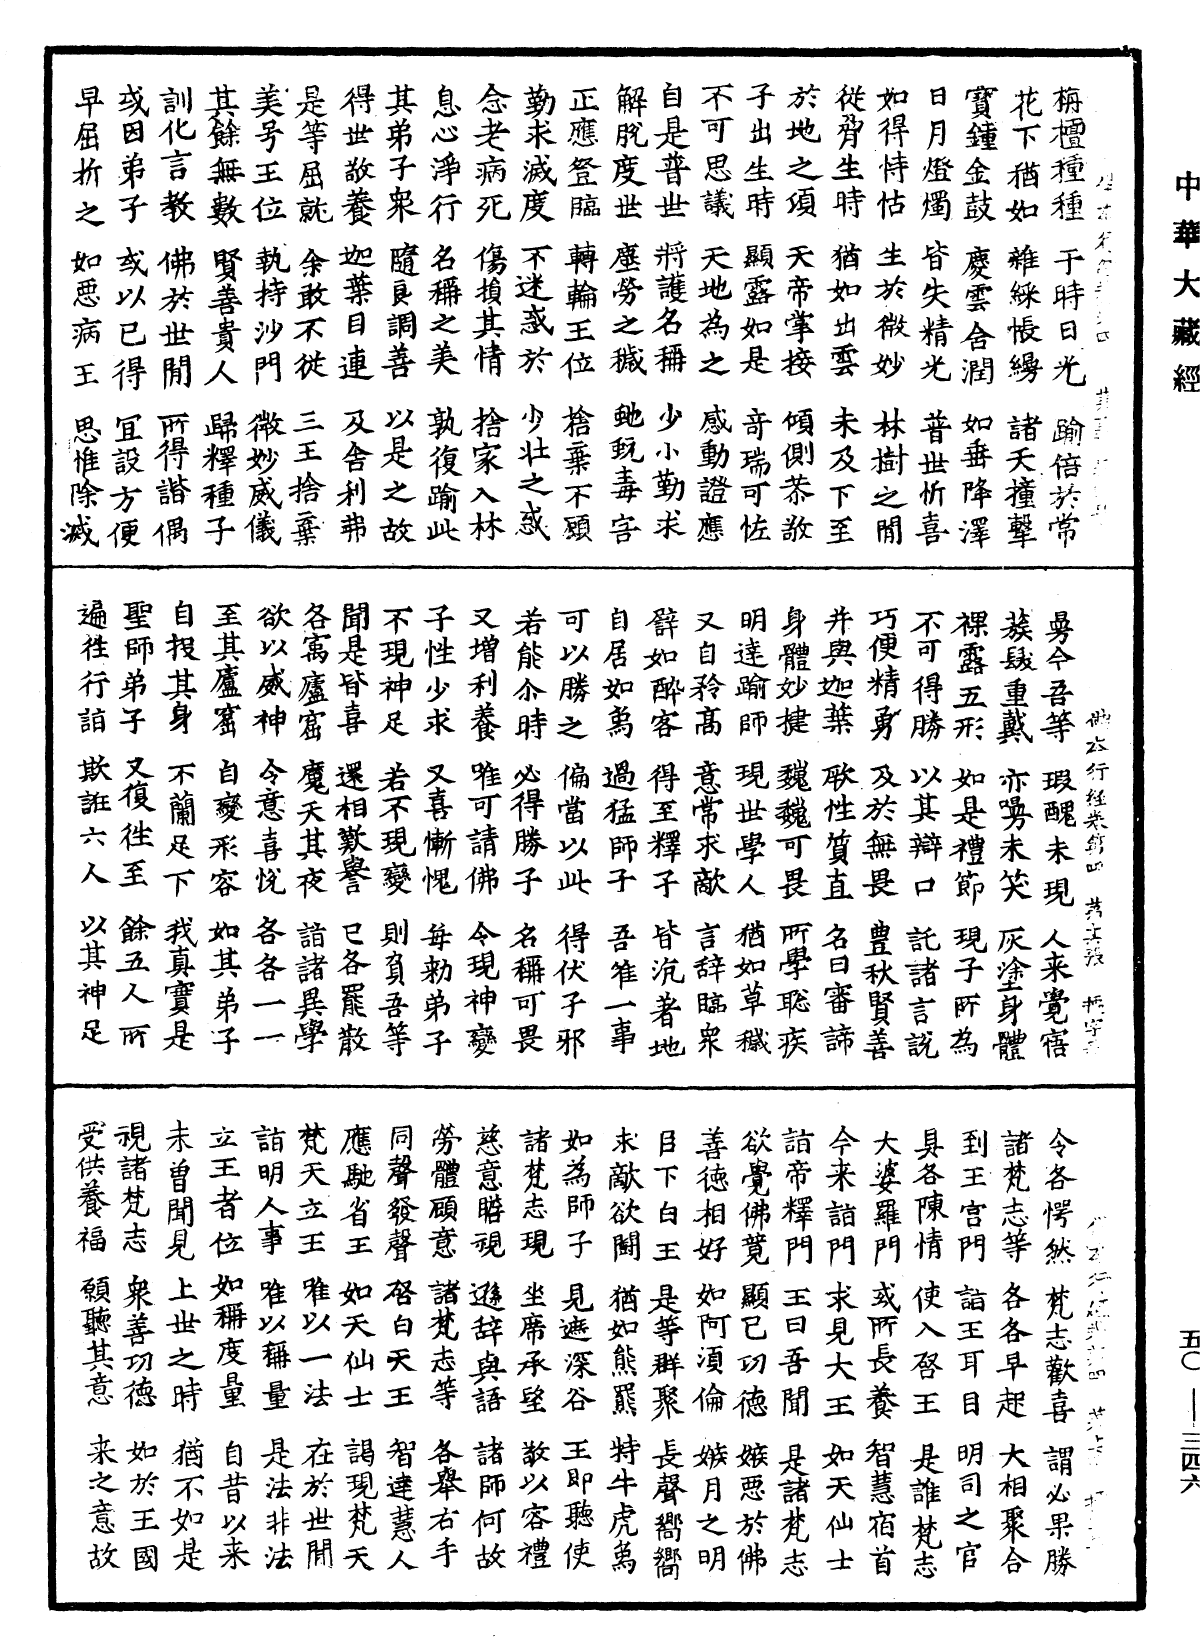 中華大藏經
栴檀種種　于時日光　踰倍於常
花下猶如　雜綵帳縵　諸天撞擊
寶鐘金鼓　慶雲合潤　如垂降澤
日月燈燭　皆失精光　普世忻喜
如得恃怙　生於微妙　林樹之間
從脅生時　猶如出雲　未及下至
於地之頃　天帝掌接　傾側恭敬
子出生時　顯露如是　奇瑞可怪
不可思議　天地為之　感動證應
自是普世　將護名稱　少小勤求
解脫度世　塵勞之穢　虵蚖毒害
正應登臨　轉輪王位　捨棄不顧
勤求滅度　不迷惑於　少壯之惑
念老病死　傷損其情　捨家入林
息心淨行　名稱之美　孰復踰此
其弟子眾　隨良調善　以是之故
得世敬養　迦葉目連　及舍利弗
是等屈就　余敢不從　三王捨棄
美号王位　執持沙門　微妙威儀
其餘無數　賢善貴人　歸釋種子
訓化言教　佛於世間　所得諧偶
或因弟子　或以已得　宜設方便
早屈折之　如惡病王　思惟除滅
佛本行經卷第四
曼今吾等　瑕醜未現　人来覺寤
蒺髮重戴　亦曼未笑　灰塗身體
裸露五形　如是禮節　現子所為
不可得勝　以其辯口　託諸言說
巧便精勇　及於無畏　豊秋賢善
并與迦葉　耶性質直　名曰審諦
身體妙揵　巍巍可畏　所學聡疾
明達踰師　現世學人　猶如草穢
又自矜高　意常求敵　言辭臨眾
辟如醉客　得至釋子　皆沉著地
自居如為　過猛師子　吾惟一事
可以勝之　偏當以此　得伏子邪
若能尒時　必得勝子　名稱可畏
又增利養　唯可請佛　令現神變
子性少求　又喜慚愧　每勑弟子
不現神足　若不現變　則負吾等
聞是皆喜　還相歎譽　已各罷散
各寓廬窟　魔天其夜　詣諸異學
欲以威神　令意喜悅　各各一一
至其廬窟　自變形容　如其弟子
自投其身　不蘭足下　我真實是
聖師弟子　又復往至　餘五人所
遍往行詣　欺誑六人　以其神足
令各愕然　梵志歡喜　謂必果勝
諸梵志等　各各早起　大相聚合
到王宮門　詣王耳目　明司之官
具各陳情　使入啓王　是誰梵志
大婆羅門　或所長養　智慧宿首
今来詣門　求見大王　如天仙士
詣帝釋門　王曰吾聞　是諸梵志
欲覺佛竟　顯已功德　嫉惡於佛
善德相好　如阿須倫　嫉月之明
目下白王　是等群聚　長聲嚮嚮
求敵欲鬪　猶如熊羆　特牛虎為
如為師子　見遮深谷　王即聽使
諸梵志現　坐席承望　敬以容禮
慈意瞻視　遜辞與語　諸師何故
勞體顧意　諸梵志等　各舉右手
同聲發聲　啓白天王　智達慧人
應馳省王　如天仙士　謁現梵天
梵天立王　雅以一法　在於世間
詣明人事　唯以稱量　是法非法
立王者位　如稱度量　自昔以来
未曾聞見　上世之時　猶不如是
視諸梵志　眾善功德　如於王國
受供養福　願聽其意　来之意故
五〇—三四六